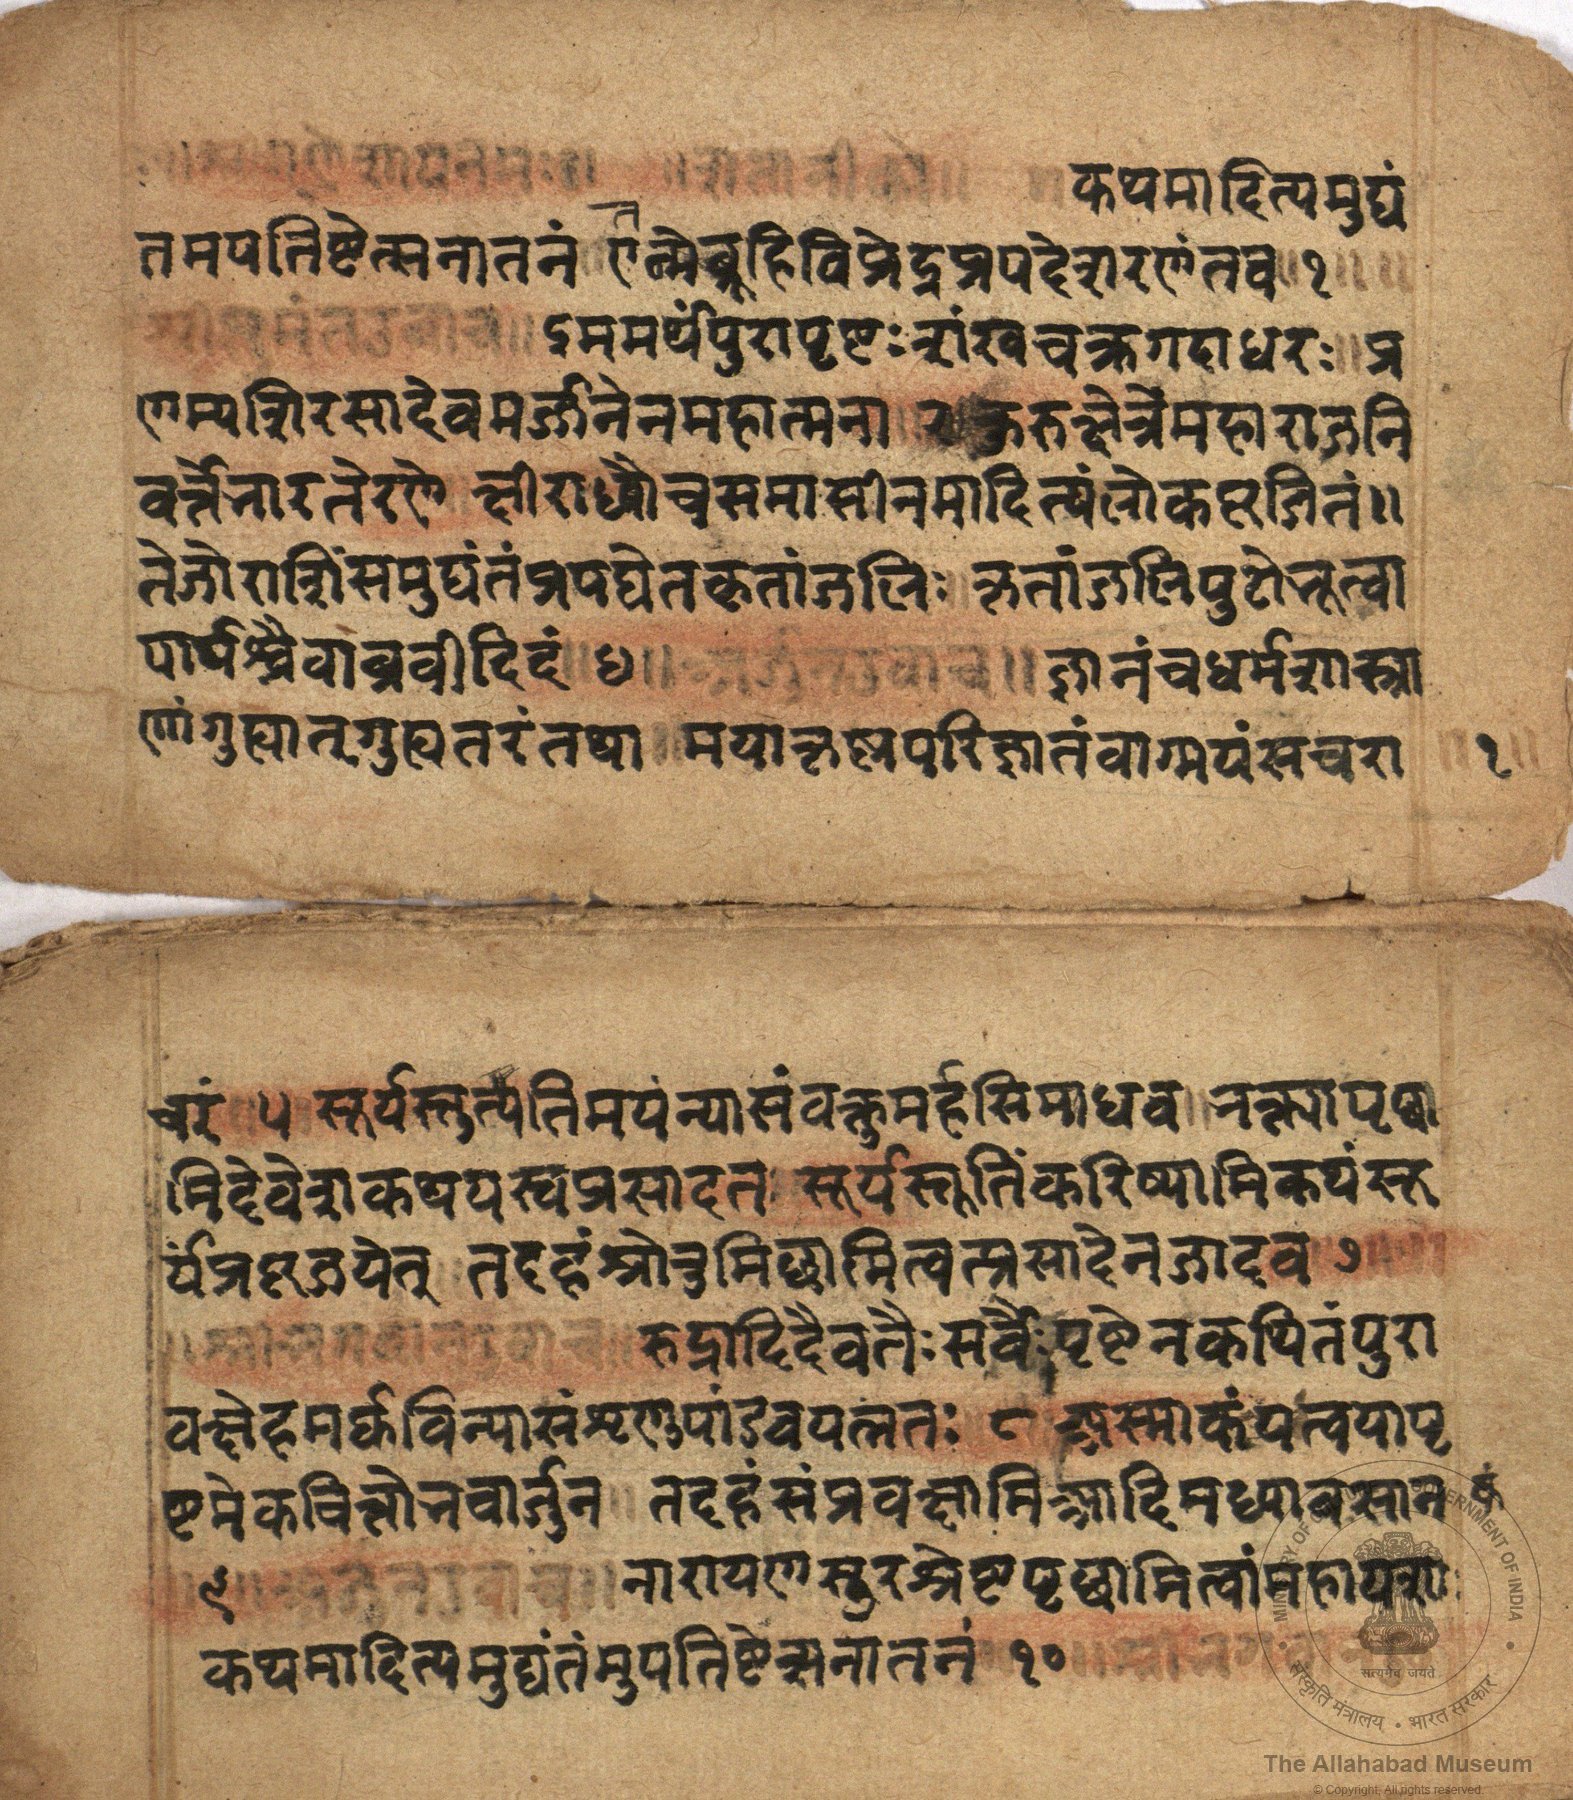 ॥ श्रीगणेशाय नमः ॥ ॥ शतानीक ॥ कथमादित्यमुद्यं
तमपतिष्टेत्सनातनं एतन्मेब्रूहिविप्रेंद्रप्रपद्येशरणंतव १ ॥ ॥
श्रीसुमंतउवाच ॥ इममर्थंपुरापृष्टः शंखचक्रगदाधरः प्र
णम्यशिरसादेवमर्ज्जुनेनमहात्मना २ कुरुक्षेत्रेमहाराजनि
वर्त्तेभारतेरणे क्षीराब्धौचसमासीनमादित्यंलोकपूजितं ॥
तेजोराशिंसमुद्यंतंप्रपद्येतकृतांजलिः कृतांजलिपुटोभूत्वा
पार्थश्चैवाब्रवीदिदं ४ ॥ अर्जुनउवाच ॥ ज्ञानंचधर्मशास्त्रा
णांगुह्यात्गुह्यतरंतथा मयाकृष्णपरिज्ञातंवाग्मयंसचरा १
चरं ५ सूर्यस्तुत्यतिमयंन्यासंवक्तुमर्हसिमाधव भक्त्यापृछा
मिदेवेशकथयस्वप्रसादत सूर्यस्तुतिंकरिष्यामिकथंसू
र्यंप्रपूजयेत् तदहंश्रोतुमिछामित्वत्प्रसादेनजादव ७
॥ श्रीभगवानउवाच ॥ रुद्रादिदैवतैः सर्वैः पृष्टेनकथितंपुरा
वक्षेहमर्कविन्यासंशृणुपांडवयत्नतः ८ अस्माकंयत्वयापृ
ष्टमेकचित्तोभवार्जुन तदहंसंप्रवक्ष्यामिआदिमध्यावसान कं
९ ॥ अर्जुनउवाच ॥ नारायणसुरश्रेष्टपृछामित्वांमहायशः
कथमादित्यमुद्यंतंमुपतिष्टेत्सनातनं १० ॥ श्रीभगवान
MINISTRY OF CULTURE, GOVERNMENT OF INDIA
सत्यमेव जयते
संस्कृति मंत्रालय • भारत सरकार
The Allahabad Museum
© Copyright, All rights reserved.